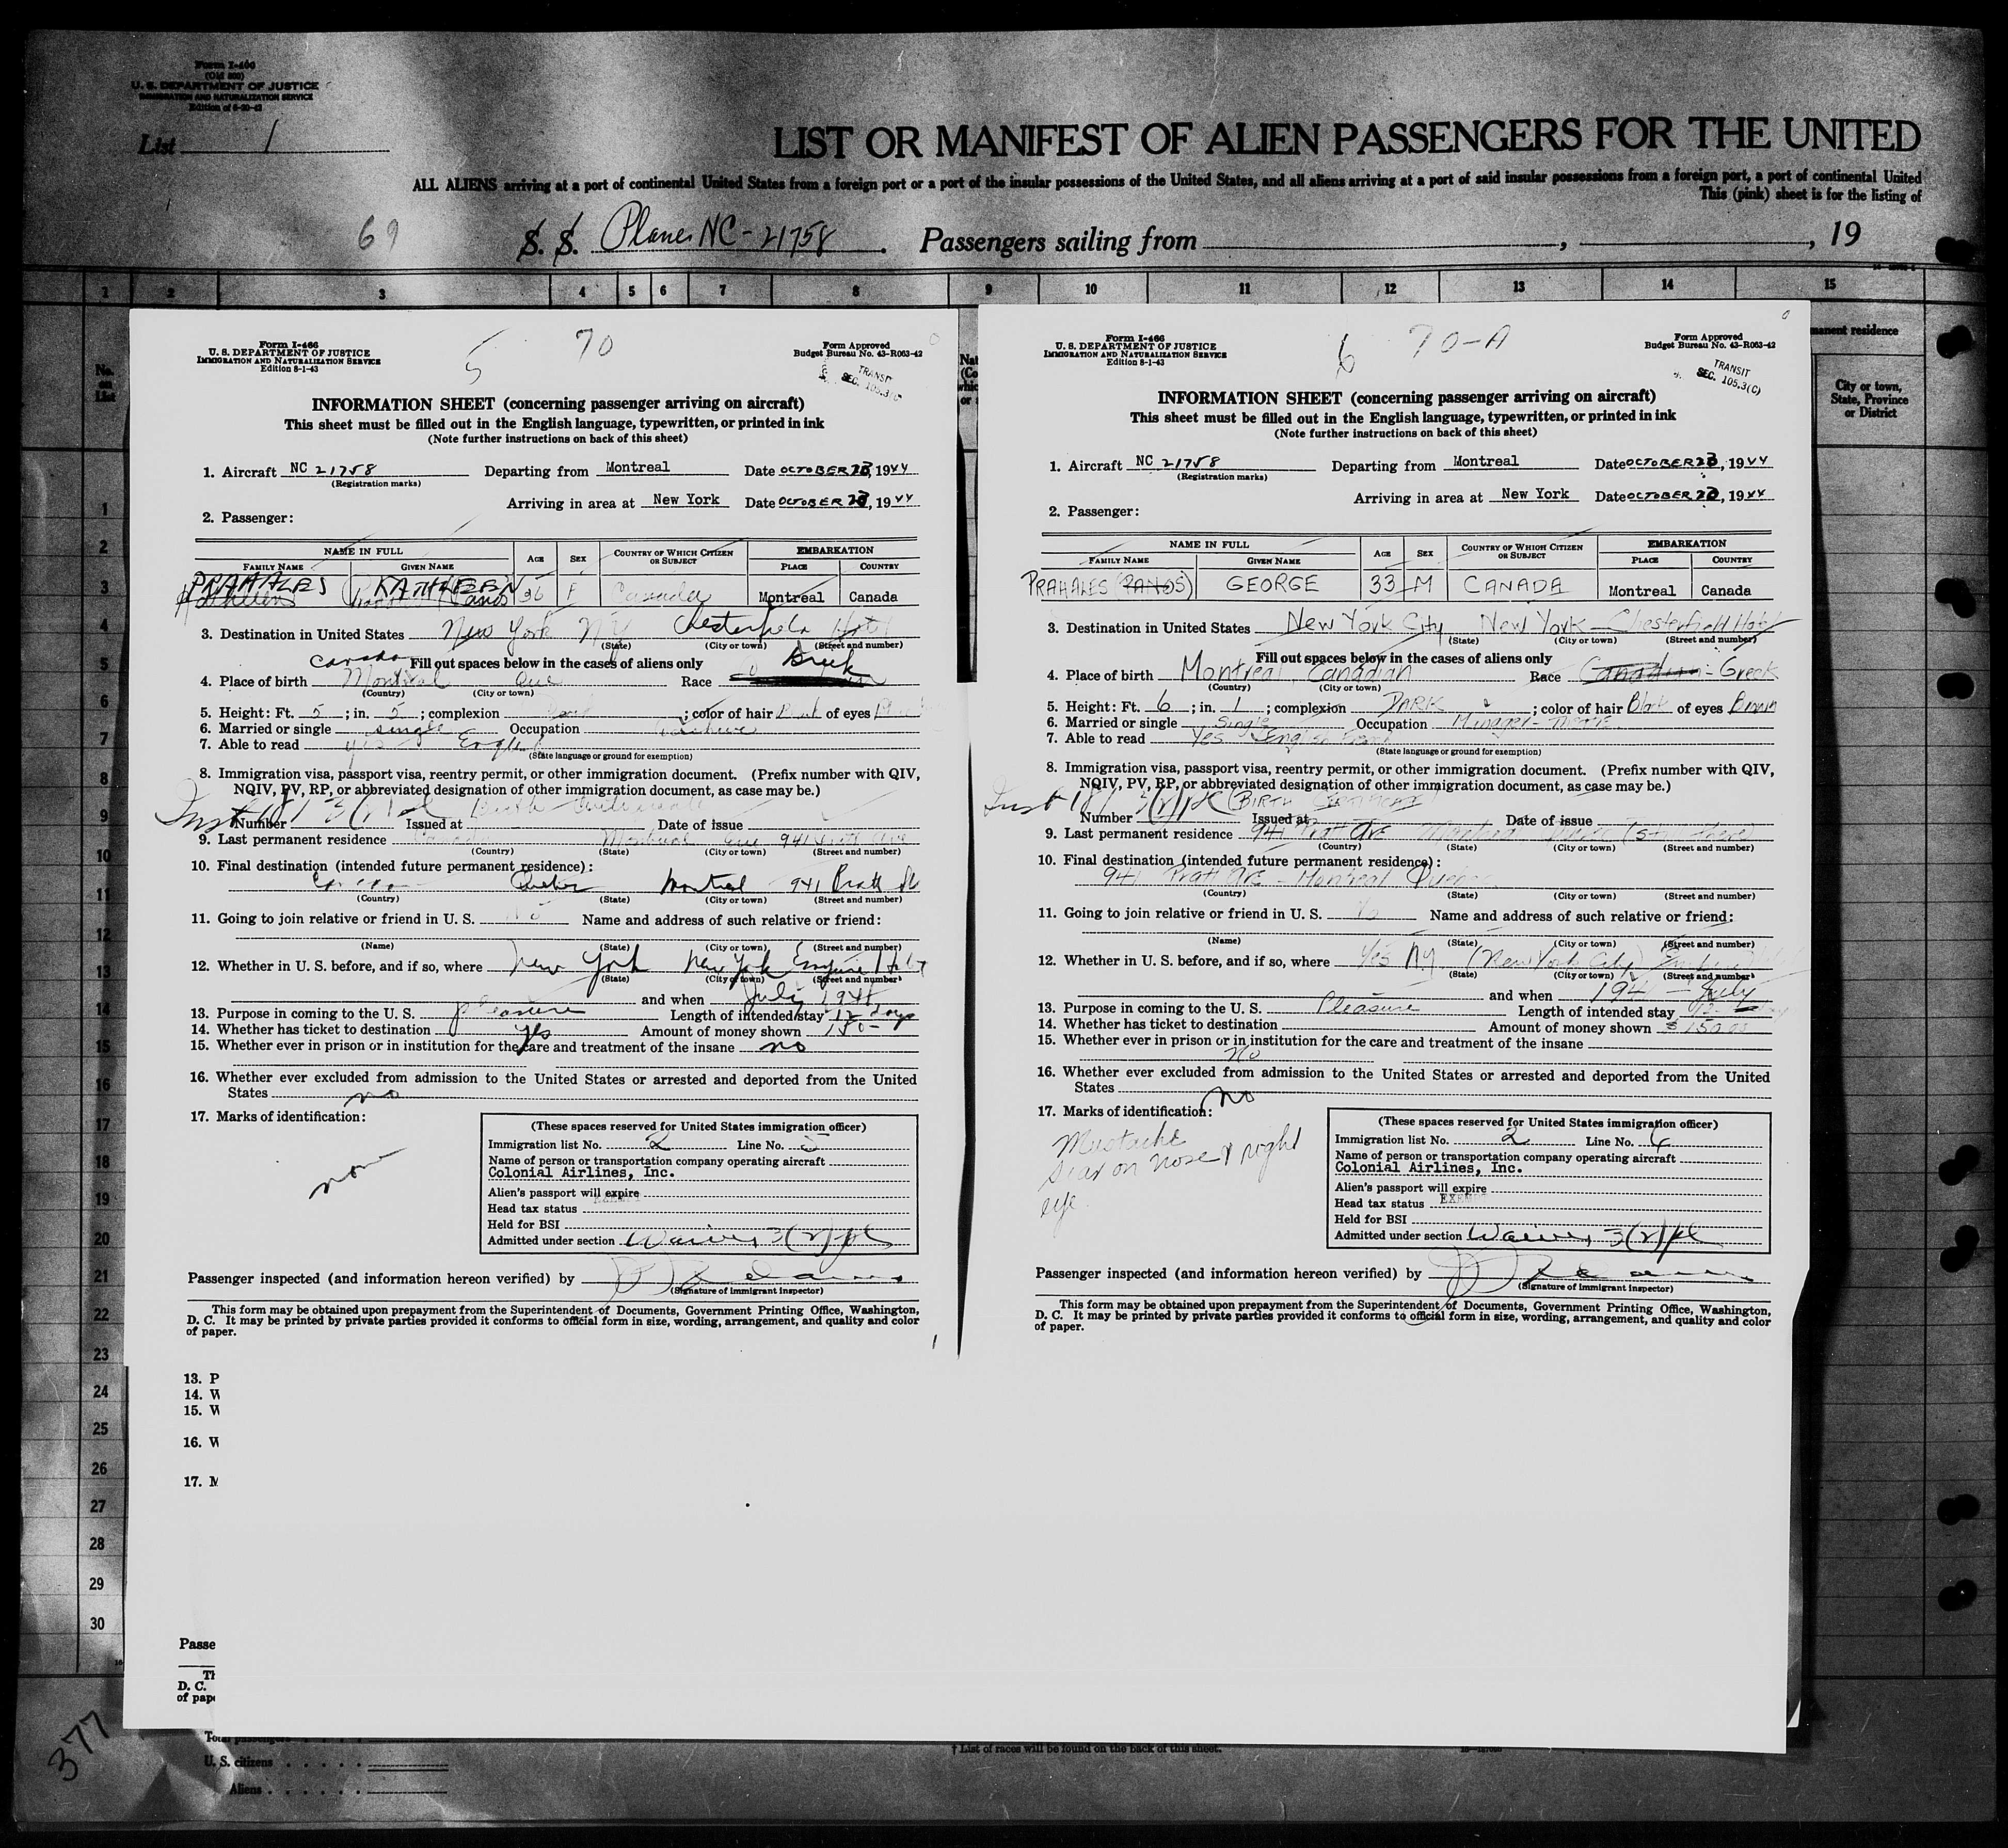 Form I-466
(Old 500)
U. S. DEPARTMENT OF JUSTICE
IMMIGRATION AND NATURALIZATION SERVICE
List 1
LIST OR MANIFEST OF ALIEN PASSENGERS FOR THE UNITED
ALL ALIENS arriving at a port of continental United States from a foreign port or a port of the insular possessions of the United States, and all aliens arriving at a port of said insular possessions from a foreign port, a port of continental United
This (pink) sheet is for the listing of
69 S. S. Plane NC-21758. Passengers sailing from , , 19
1 2 3 4 5 6 7 8 9 10 11 12 13 14 15
No. on List
manent residence
City or town, State, Province or District
Form I-466
U. S. DEPARTMENT OF JUSTICE
IMMIGRATION AND NATURALIZATION SERVICE
Edition 8-1-43
5 70
Form Approved
Budget Bureau No. 43-R063-42
TRANSIT
SEC. 105.3(C)
INFORMATION SHEET (concerning passenger arriving on aircraft)
This sheet must be filled out in the English language, typewritten, or printed in ink
(Note further instructions on back of this sheet)
1. Aircraft NC 21758 Departing from Montreal Date OCTOBER 23, 1944
(Registration marks)
Arriving in area at New York Date OCTOBER 23, 1944
2. Passenger:
NAME IN FULL AGE SEX COUNTRY OF WHICH CITIZEN OR SUBJECT EMBARKATION
FAMILY NAME GIVEN NAME PLACE COUNTRY
PRAHALES KATHLEEN 36 F Canada Montreal Canada
3. Destination in United States New York NY Chesterfield Hotel
(State) (City or town) (Street and number)
Canada Fill out spaces below in the cases of aliens only
4. Place of birth Montreal Que Race Greek
(Country) (City or town)
5. Height: Ft. 5; in. 5; complexion ; color of hair of eyes
6. Married or single single Occupation
7. Able to read yes English
(State language or ground for exemption)
8. Immigration visa, passport visa, reentry permit, or other immigration document. (Prefix number with QIV,
NQIV, PV, RP, or abbreviated designation of other immigration document, as case may be.)
Number Issued at Date of issue
9. Last permanent residence Montreal Que 941
(Country) (State) (City or town) (Street and number)
10. Final destination (intended future permanent residence):
Canada Quebec Montreal 941 Pratt
(Country) (State) (City or town) (Street and number)
11. Going to join relative or friend in U. S. No Name and address of such relative or friend:
(Name) (State) (City or town) (Street and number)
12. Whether in U. S. before, and if so, where New York New York
(State) (City or town) (Street and number)
and when July 1941
13. Purpose in coming to the U. S. pleasure Length of intended stay 12 days
14. Whether has ticket to destination yes Amount of money shown 150-
15. Whether ever in prison or in institution for the care and treatment of the insane no
16. Whether ever excluded from admission to the United States or arrested and deported from the United
States no
17. Marks of identification:
none
(These spaces reserved for United States immigration officer)
Immigration list No. 2 Line No. 5
Name of person or transportation company operating aircraft
Colonial Airlines, Inc.
Alien's passport will expire
Head tax status
Held for BSI
Admitted under section Waiver 3(2)
Passenger inspected (and information hereon verified) by
(Signature of immigrant inspector)
This form may be obtained upon prepayment from the Superintendent of Documents, Government Printing Office, Washington,
D. C. It may be printed by private parties provided it conforms to official form in size, wording, arrangement, and quality and color
of paper.
Form I-466
U. S. DEPARTMENT OF JUSTICE
IMMIGRATION AND NATURALIZATION SERVICE
Edition 8-1-43
6 70-A
Form Approved
Budget Bureau No. 43-R063-42
TRANSIT
SEC. 105.3(C)
INFORMATION SHEET (concerning passenger arriving on aircraft)
This sheet must be filled out in the English language, typewritten, or printed in ink
(Note further instructions on back of this sheet)
1. Aircraft NC 21758 Departing from Montreal Date OCTOBER 23, 1944
(Registration marks)
Arriving in area at New York Date OCTOBER 23, 1944
2. Passenger:
NAME IN FULL AGE SEX COUNTRY OF WHICH CITIZEN OR SUBJECT EMBARKATION
FAMILY NAME GIVEN NAME PLACE COUNTRY
PRAHALES (PANOS) GEORGE 33 M CANADA Montreal Canada
3. Destination in United States New York City New York Chesterfield Hotel
(State) (City or town) (Street and number)
Fill out spaces below in the cases of aliens only
4. Place of birth Montreal, Canadian Race Canadian - Greek
(Country) (City or town)
5. Height: Ft. 6; in. 1; complexion DARK; color of hair Black of eyes Brown
6. Married or single Single Occupation Manager - Theatre
7. Able to read Yes English French
(State language or ground for exemption)
8. Immigration visa, passport visa, reentry permit, or other immigration document. (Prefix number with QIV,
NQIV, PV, RP, or abbreviated designation of other immigration document, as case may be.)
(BIRTH
Number Issued at Date of issue
9. Last permanent residence 941 Pratt Ave Montreal (still there)
(Country) (State) (City or town) (Street and number)
10. Final destination (intended future permanent residence):
941 Pratt Ave - Montreal Quebec
(Country) (State) (City or town) (Street and number)
11. Going to join relative or friend in U. S. No Name and address of such relative or friend:
(Name) (State) (City or town) (Street and number)
12. Whether in U. S. before, and if so, where Yes NY (New York City)
(State) (City or town) (Street and number)
and when 1941 - July
13. Purpose in coming to the U. S. Pleasure Length of intended stay
14. Whether has ticket to destination Amount of money shown $150.00
15. Whether ever in prison or in institution for the care and treatment of the insane
No
16. Whether ever excluded from admission to the United States or arrested and deported from the United
States no
17. Marks of identification:
Mustache
Scar on nose & right
eye
(These spaces reserved for United States immigration officer)
Immigration list No. 2 Line No. 6
Name of person or transportation company operating aircraft
Colonial Airlines, Inc.
Alien's passport will expire
Head tax status EXEMPT
Held for BSI
Admitted under section Waiver 3(2)
Passenger inspected (and information hereon verified) by
(Signature of immigrant inspector)
This form may be obtained upon prepayment from the Superintendent of Documents, Government Printing Office, Washington,
D. C. It may be printed by private parties provided it conforms to official form in size, wording, arrangement, and quality and color
of paper.
1
2
3
4
5
6
7
8
9
10
11
12
13
14
15
16
17
18
19
20
21
22
23
24
25
26
27
28
29
30
13. P
14. W
15. W
16. W
17. M
Passe
Th
D. C.
of pape
Total passengers
U. S. citizens
Aliens
† List of races will be found on the back of this sheet.
377